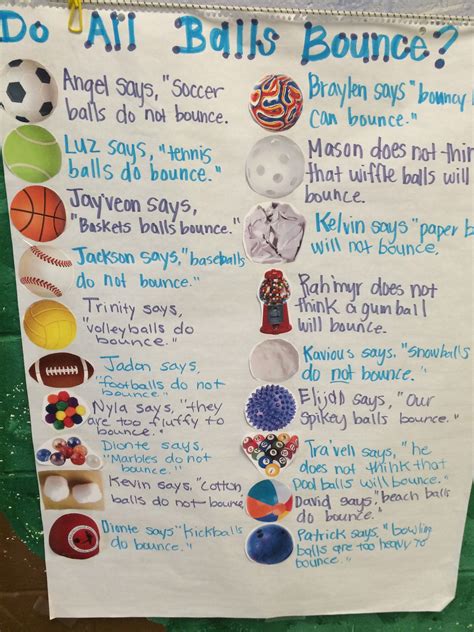 Do All Balls Bounce?
Angel says, "Soccer
balls do not bounce.
Luz says, "tennis
balls do bounce."
Jay'veon says,
"Baskets balls bounce."
Jackson says, "baseballs
do not bounce."
Trinity says,
"volleyballs do
bounce."
Jadon says,
"footballs do not
bounce."
Nyla says, "they
are too fluffy to
bounce."
Dionte says,
"Marbles do not
bounce."
Kevin says, "Cotton
balls do not bounce
Dionte says "Kickballs
do bounce.
Braylen says "bouncy
can bounce."
Mason does not thin
that wiffle balls will
bounce.
Kelvin says "paper b
will not bounce.
Rah'myr does not
think a gumball
will bounce.
Kavious says, "snowballs
do not bounce."
Elijah says, "Our
spikey balls bounce."
Tra'vell says, "he
does not think that
pool balls will bounce."
David says, "beach balls
do bounce."
Patrick says, "bowling
balls are too heavy to
bounce."